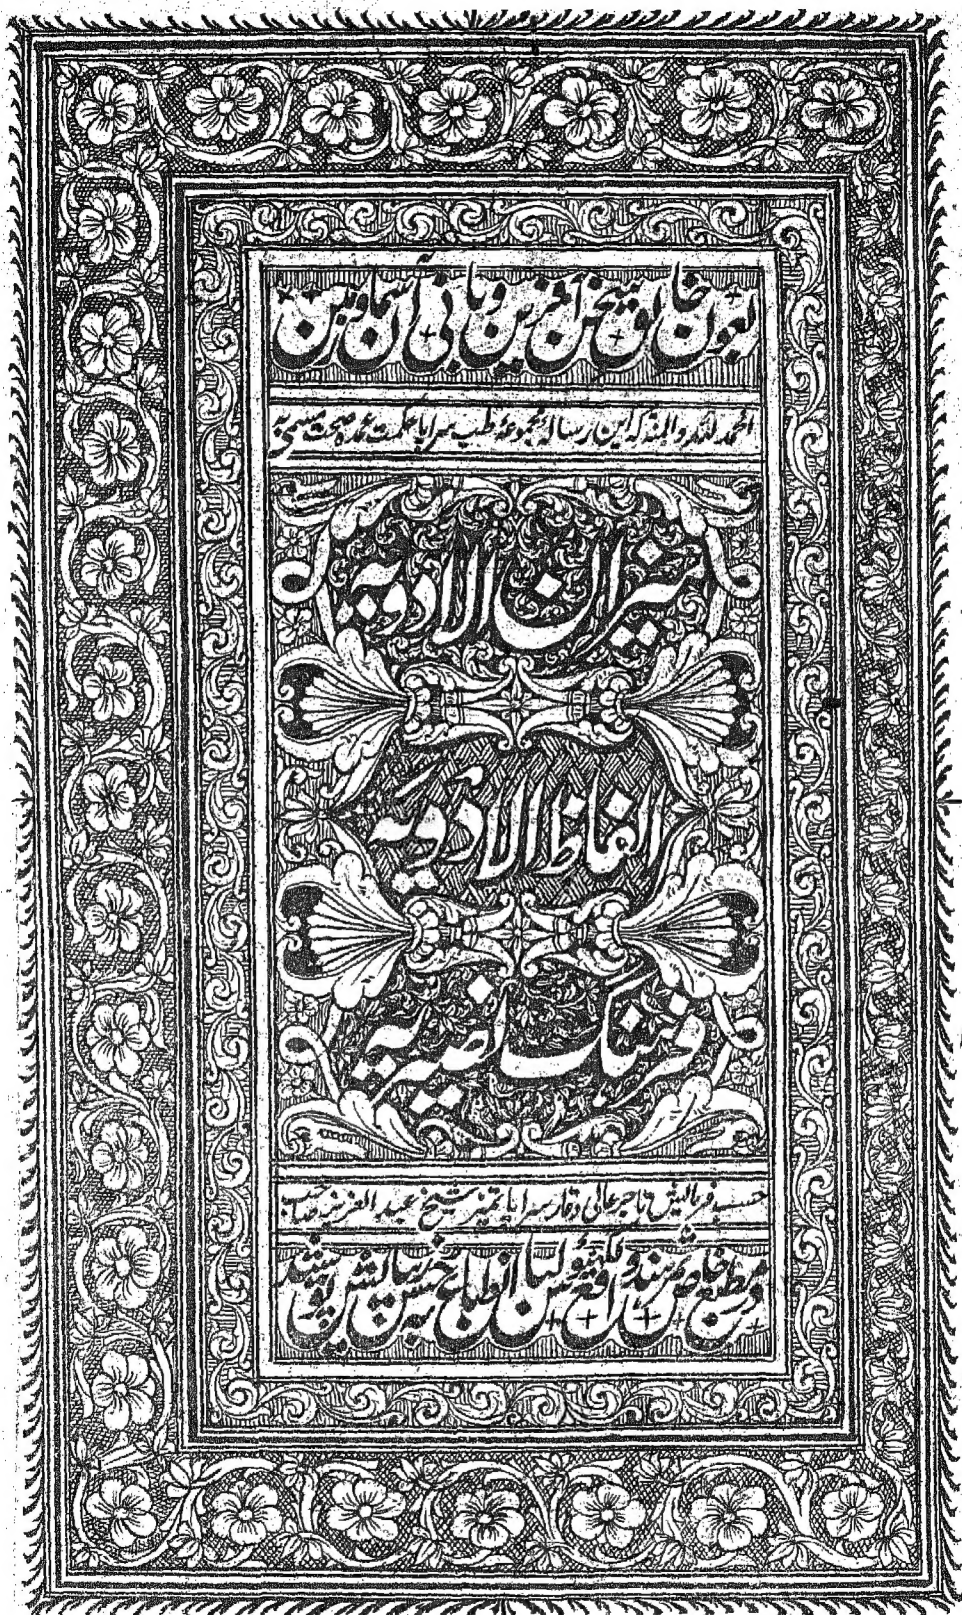 بعون خالق سخن آفرین و بانی آسمان و زمین
الحمد لله والمنة که این رساله مجموعهٔ طب سراپا حکمت عمده صحت مسمی به
میزان الادویه
الفاظ الادویه
فرهنگ نصیریه
حسب فرمایش تاجر عالی وقار سراپا تمیز شیخ عبد العزیز صاحب
در مطبع خاص ثمر هند واقع لکهنؤ لباس انطباع بحسن زیبایش پوشید